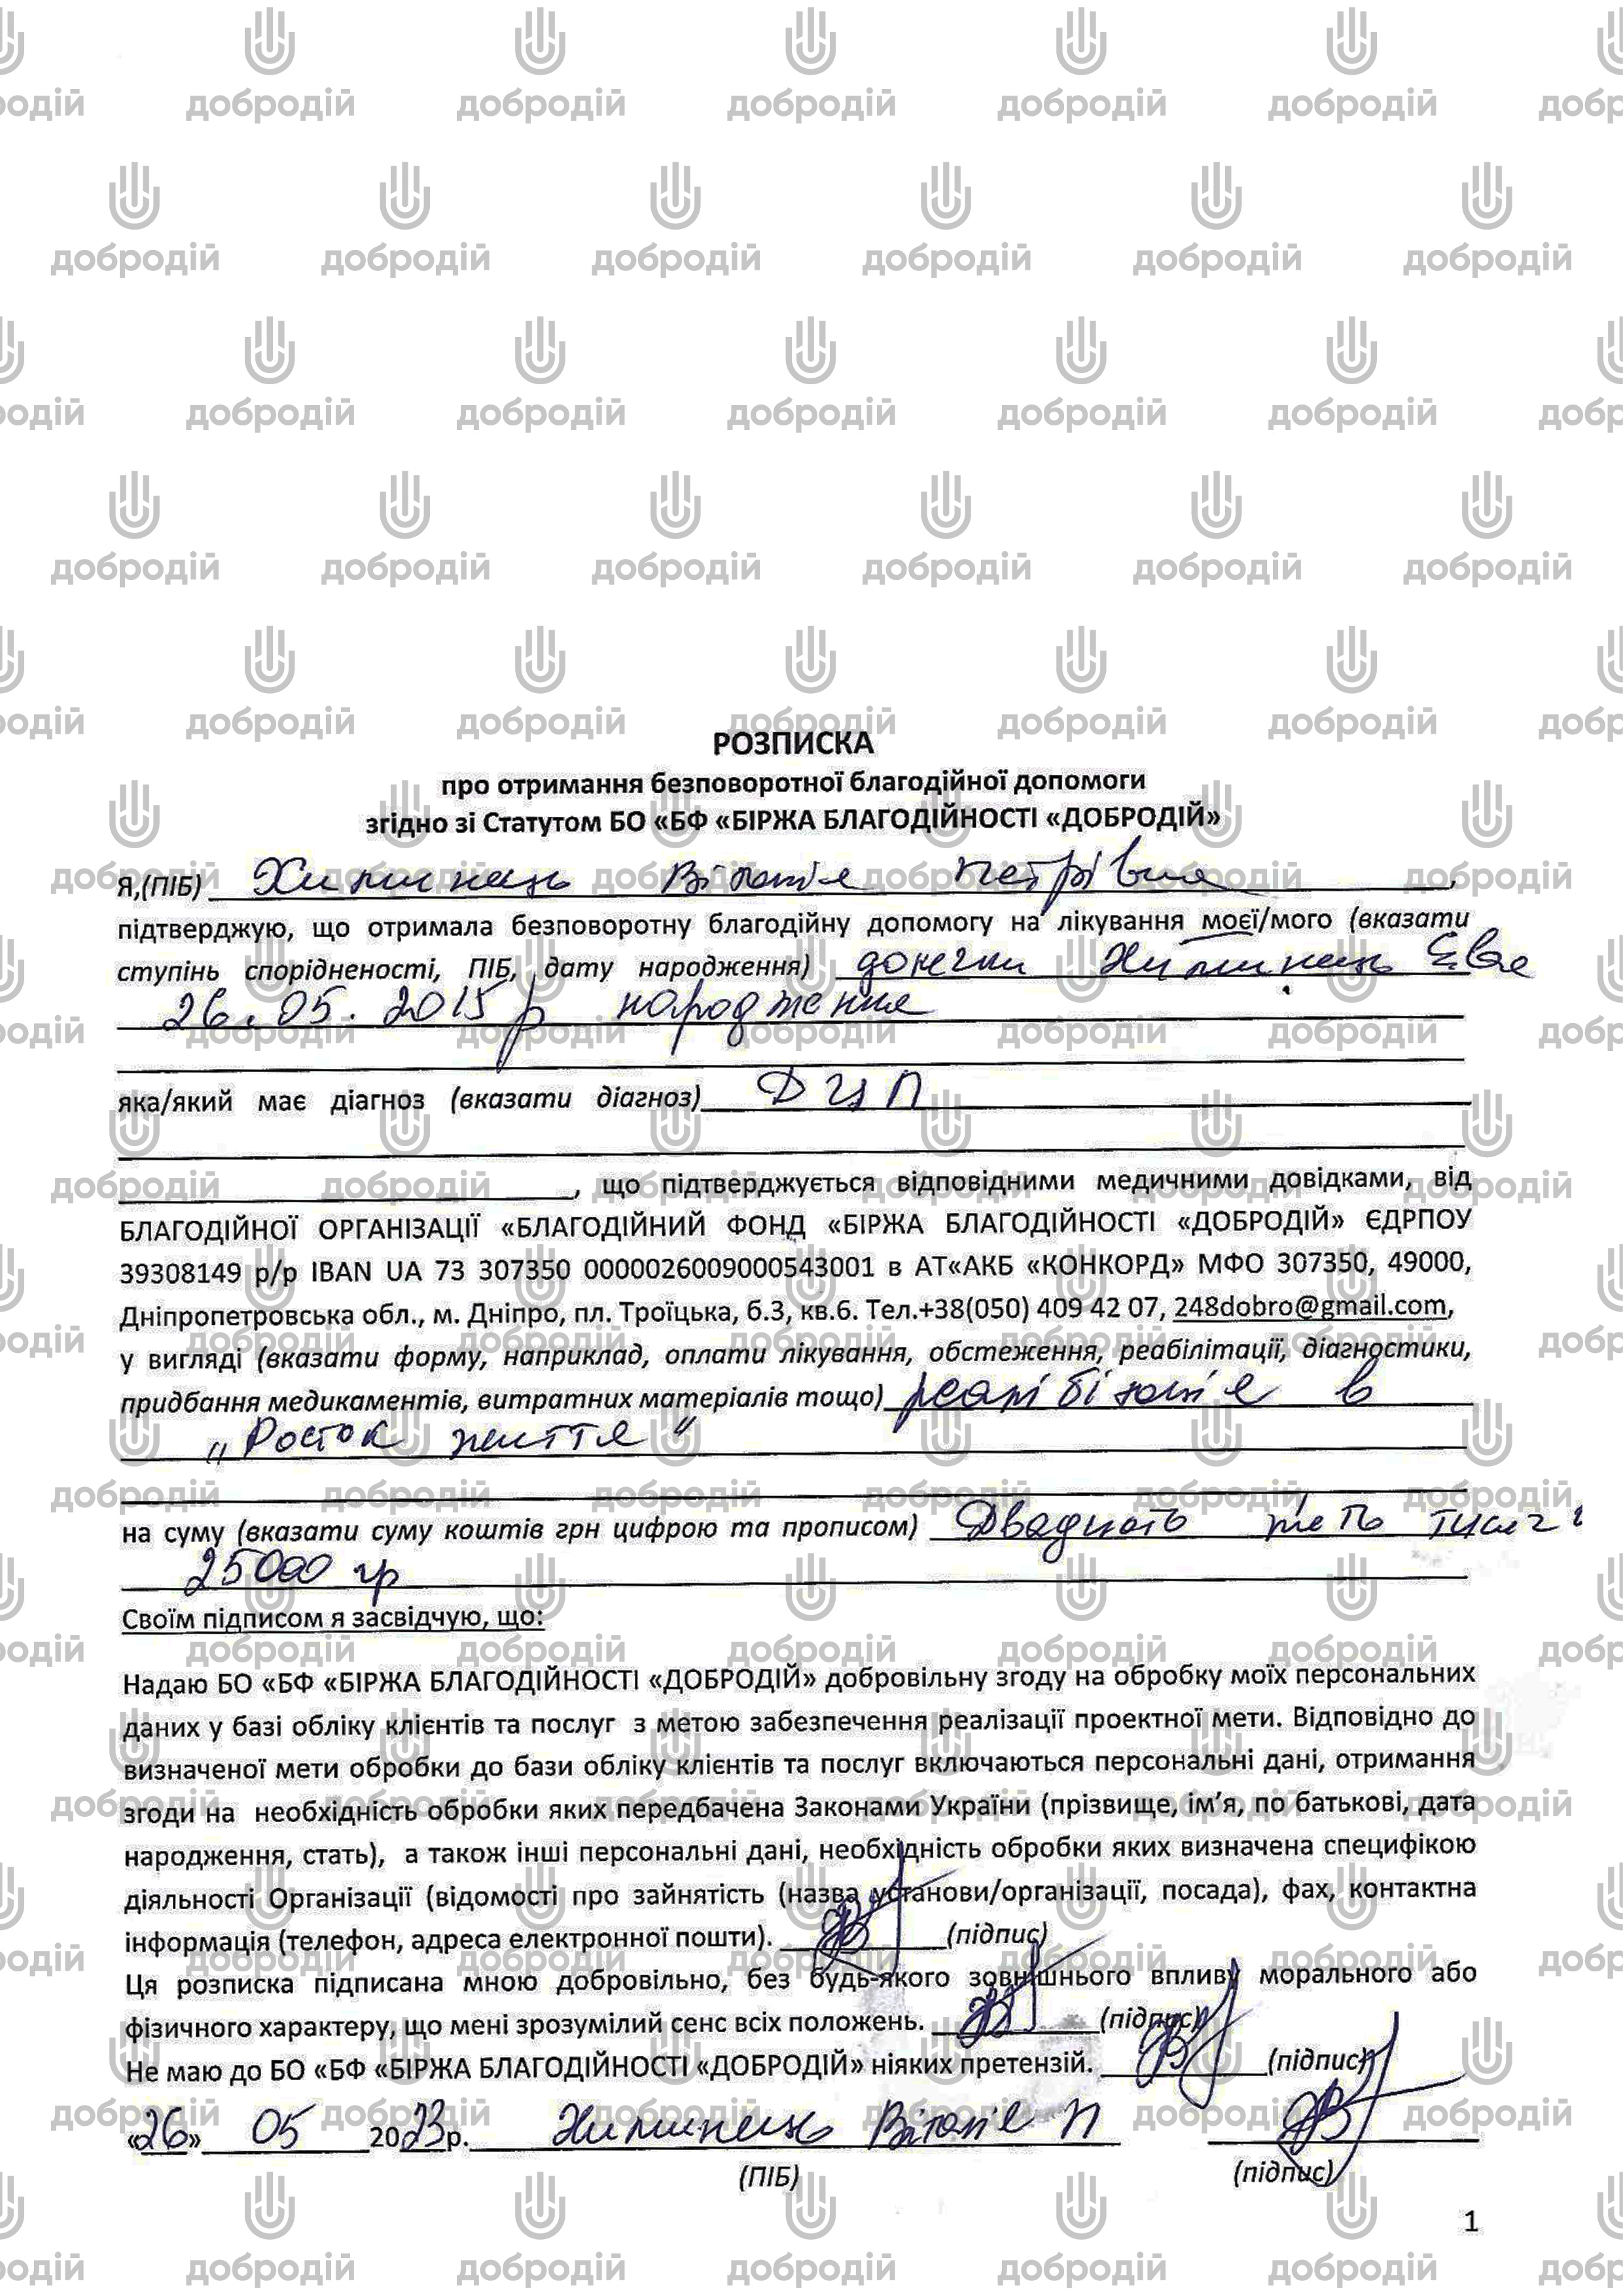 РОЗПИСКА
про отримання безповоротної благодійної допомоги
згідно зі Статутом БО «БФ «БІРЖА БЛАГОДІЙНОСТІ «ДОБРОДІЙ»
Я,(ПІБ) Петрівна,
підтверджую, що отримала безповоротну благодійну допомогу на лікування моєї/мого (вказати
ступінь спорідненості, ПІБ, дату народження) донечки Єва
26.05.2015 р народження
яка/який має діагноз (вказати діагноз) ДЦП
, що підтверджується відповідними медичними довідками, від
БЛАГОДІЙНОЇ ОРГАНІЗАЦІЇ «БЛАГОДІЙНИЙ ФОНД «БІРЖА БЛАГОДІЙНОСТІ «ДОБРОДІЙ» ЄДРПОУ
39308149 р/р IBAN UA 73 307350 0000026009000543001 в АТ«АКБ «КОНКОРД» МФО 307350, 49000,
Дніпропетровська обл., м. Дніпро, пл. Троїцька, б.3, кв.6. Тел.+38(050) 409 42 07, 248dobro@gmail.com,
у вигляді (вказати форму, наприклад, оплати лікування, обстеження, реабілітації, діагностики,
придбання медикаментів, витратних матеріалів тощо) в
„Росток життя"
на суму (вказати суму коштів грн цифрою та прописом) Двадцять пять тисяч
25000 гр
Своїм підписом я засвідчую, що:
Надаю БО «БФ «БІРЖА БЛАГОДІЙНОСТІ «ДОБРОДІЙ» добровільну згоду на обробку моїх персональних
даних у базі обліку клієнтів та послуг з метою забезпечення реалізації проектної мети. Відповідно до
визначеної мети обробки до бази обліку клієнтів та послуг включаються персональні дані, отримання
згоди на необхідність обробки яких передбачена Законами України (прізвище, ім'я, по батькові, дата
народження, стать), а також інші персональні дані, необхідність обробки яких визначена специфікою
діяльності Організації (відомості про зайнятість (назва установи/організації, посада), фах, контактна
інформація (телефон, адреса електронної пошти). (підпис)
Ця розписка підписана мною добровільно, без будь-якого зовнішнього впливу морального або
фізичного характеру, що мені зрозумілий сенс всіх положень. (підпис)
Не маю до БО «БФ «БІРЖА БЛАГОДІЙНОСТІ «ДОБРОДІЙ» ніяких претензій. (підпис)
«26» 05 2023р. П
(ПІБ) (підпис)
1